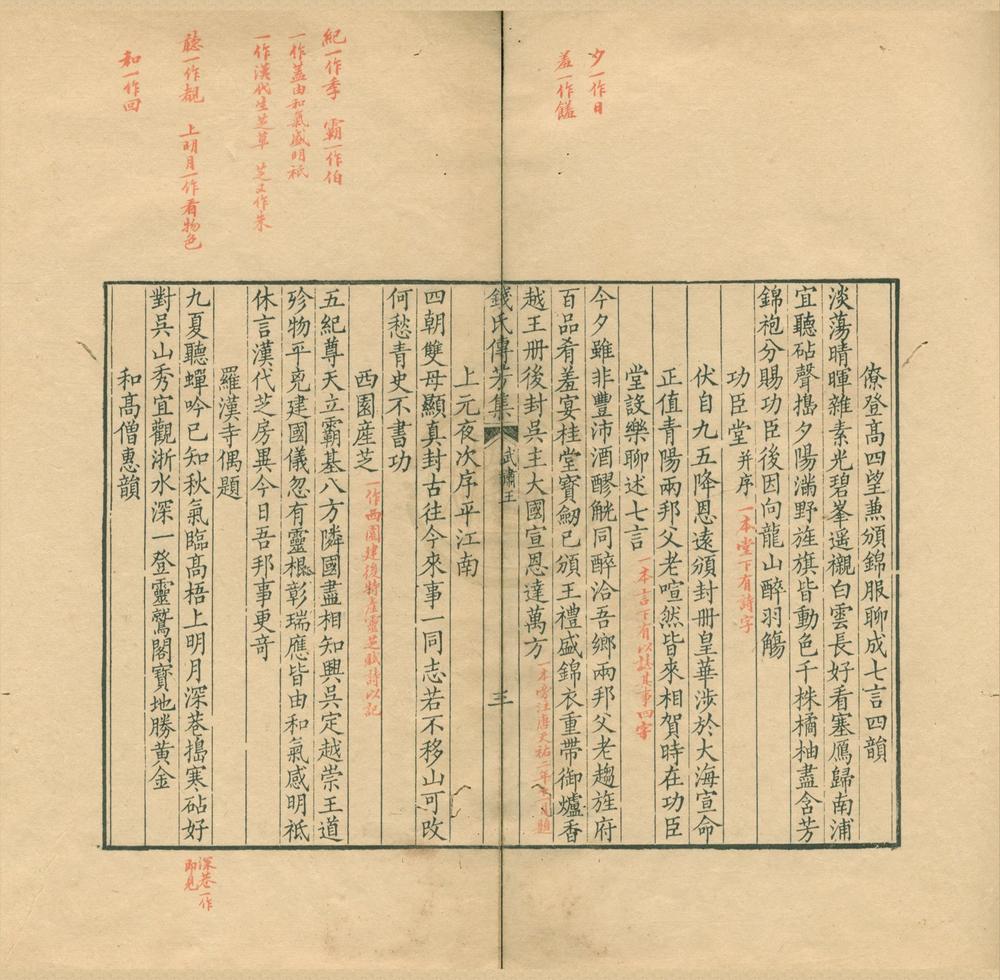 夕一作日
羞一作饈
僚登高四望兼頒錦服聊成七言四韻
淡蕩晴暉雜素光碧峯遥襯白雲長好看塞鴈歸南浦
宜聽砧聲搗夕陽滿野旌旗皆動色千株橘柚盡含芳
錦袍分賜功臣後因向龍山醉羽觴
功臣堂并序 一本堂下有詩字
伏自九五降恩遠頒封册皇華涉於大海宣命
正值青陽兩邦父老喧然皆來相賀時在功臣
堂設樂聊述七言 一本言下有以誌其事四字
今夕雖非豐沛酒醪觥同醉洽吾鄉兩邦父老趨旌府
百品肴羞宴桂堂寳劒已頒王禮盛錦衣重帶御爐香
越王册後封吳主大國宣恩達萬方 一本旁注唐天祐二年
錢氏傳芳集
武肅王
三
紀一作季 霸一作伯
一作蓋由和氣盛明祇
一作漢代生芝草 芝又作朱
聽一作覩 上明月一作看物色
和一作回
上元夜次序平江南
四朝雙母顯真封古往今來事一同志若不移山可改
何愁青史不書功
西園産芝 一作西園建後特產靈芝賦詩以記
五紀尊天立霸基八方隣國盡相知興吳定越崇王道
殄物平兇建國儀忽有靈根彰瑞應皆由和氣感明祇
休言漢代芝房異今日吾邦事更奇
羅漢寺偶題
九夏聽蟬吟已知秋氣臨髙梧上明月深巷搗寒砧好
深巷一作
即見
對吳山秀宜觀浙水深一登靈鷲閣寳地勝黄金
和髙僧惠韻